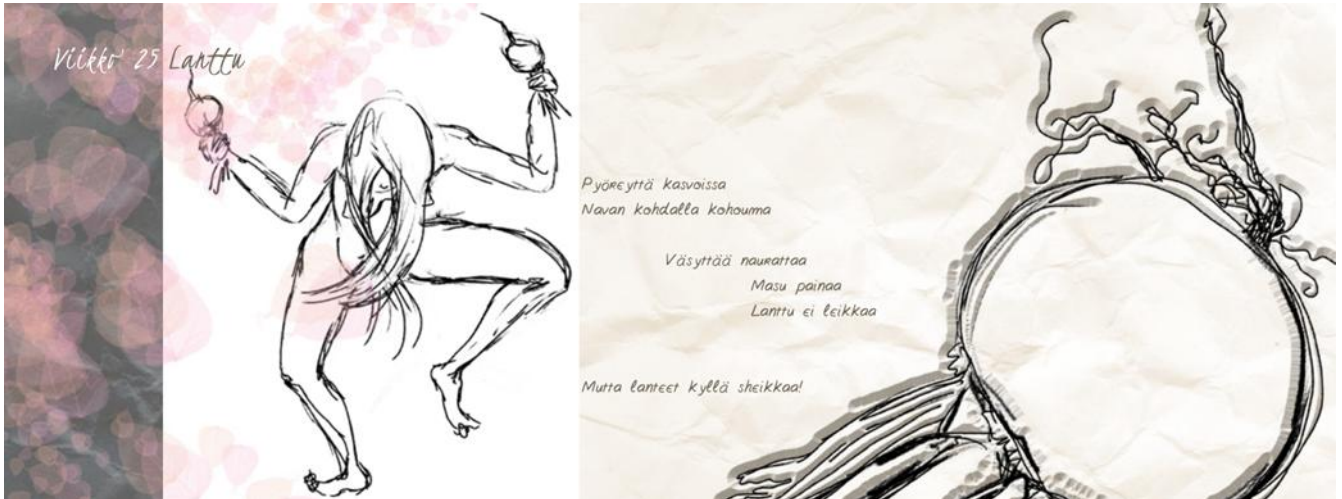 Viikko 25 Lanttu
Pyöreyttä kasvoissa
Navan kohdalla kohouma
Väsyttää naurattaa
Masu painaa
Lanttu ei leikkaa
Mutta lanteet kyllä sheikkaa!